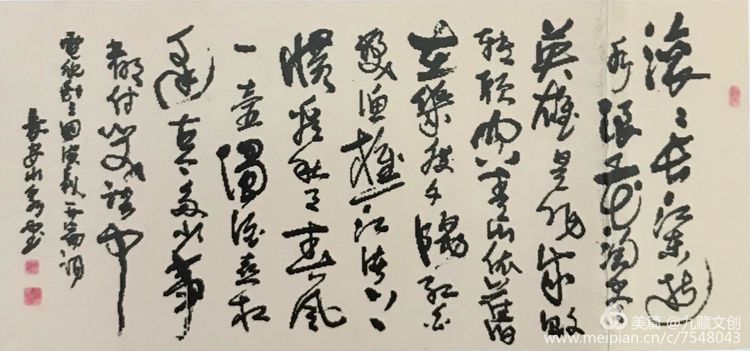 滚〻長江東逝
水浪花淘尽
英雄是非成敗
转头空青山依舊
在幾度夕陽红白
髮渔樵江渚上
惯看秋月春風
一壶濁酒喜相
逢古今多少事
都付笑談中
電視劇三国演義开篇詞
美篇@九藏文创
www.meipian.cn/c/7548043